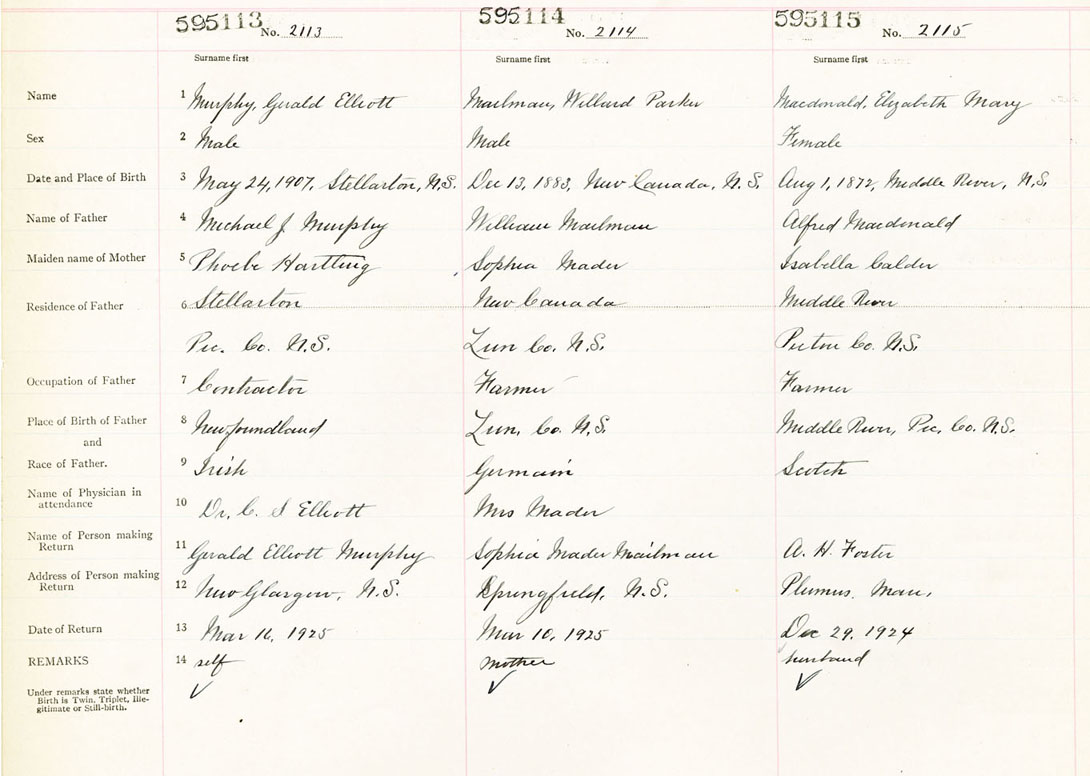 595113 No. 2113 595114 No. 2114 595115 No. 2115
Surname first Surname first Surname first
Name 1 Murphy, Gerald Elliott Mailman, Willard Parker Macdonald, Elizabeth Mary
Sex 2 Male Male Female
Date and Place of Birth 3 May 24, 1907, Stellarton, N.S. Dec 13, 1883, New Canada, N.S. Aug 1, 1872, Middle River, N.S.
Name of Father 4 Michael J Murphy William Mailman Alfred Macdonald
Maiden name of Mother 5 Phoebe Hartling Sophia Mader Isabella Calder
Residence of Father 6 Stellarton New Canada Middle River
Pic. Co. N.S. Lun Co. N.S. Pictou Co. N.S.
Occupation of Father 7 Contractor Farmer Farmer
Place of Birth of Father 8 Newfoundland Lun. Co. N.S. Middle River, Pic. Co. N.S.
and
Race of Father. 9 Irish German Scotch
Name of Physician in
attendance 10 Dr. C. S Elliott Mrs Mader
Name of Person making
Return 11 Gerald Elliott Murphy Sophia Mader Mailman A. H. Foster
Address of Person making
Return 12 New Glasgow, N.S. Springfield, N.S. Plumus. Man.
Date of Return 13 Mar 16, 1925 Mar 10, 1925 Dec 29, 1924
REMARKS 14 self mother husband
Under remarks state whether
Birth is Twin, Triplet, Ille-
gitimate or Still-birth.